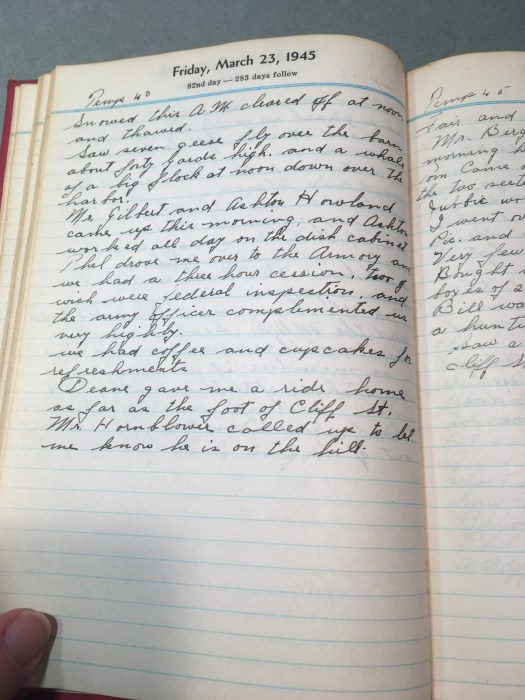 Friday, March 23, 1945
82nd day — 283 days follow
Temp 40
Snowed this A.M cleared off at noon
and thawed.
Saw seven geese fly over the barn
about forty yards high. and a whale
of a big flock at noon down over the
harbor.
Mr. Gilbert and Ashton Howland
came up this morning, and Ashton
worked all day on the dish cabinet
Phel drove me over to the Armory an
we had a three hour cession, two of
wich were federal inspection, and
the army officer complemented us
very highly.
we had coffee and cupcakes for
refreshments
Deane gave me a ride home
as far as the foot of Cliff St.
Mr. Hornblower called up to let
me know he is on the hill.
Temp 45
Fair and
Mr. Berg
morning h
om came
the two sect
Tubbie wo
I went o
Pic. and
Very few
Bought
boxes of 2
Bill wa
a hunte
saw a
cliff st